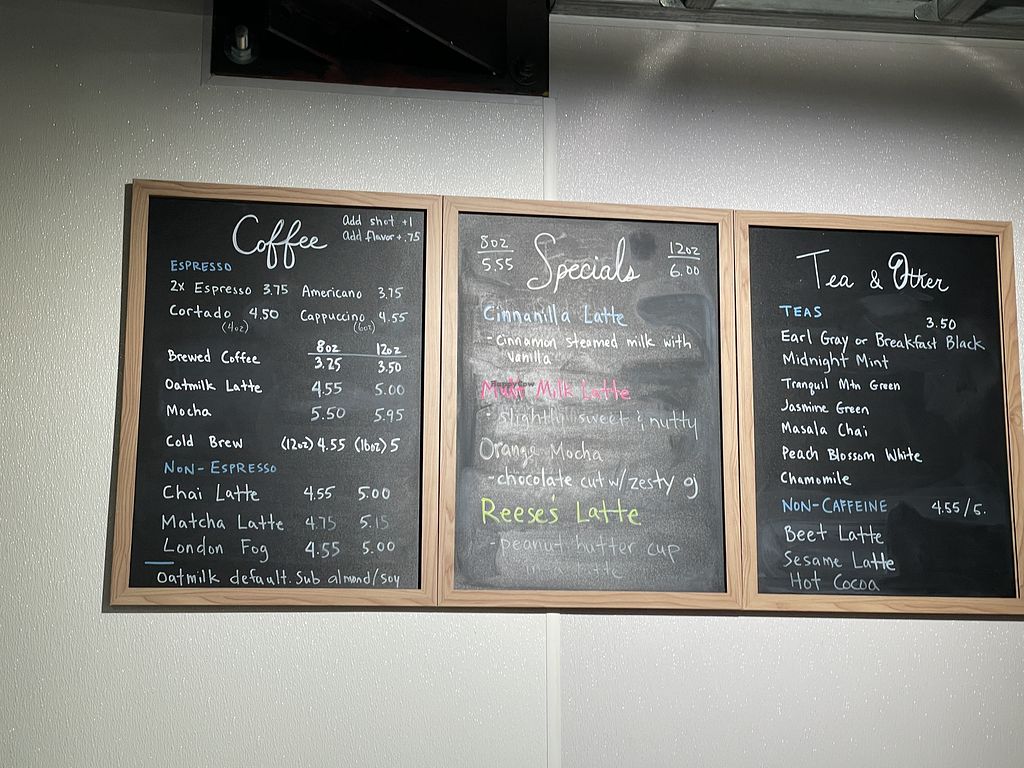 Coffee
Add shot +1
Add flavor + .75
ESPRESSO
2x Espresso 3.75 Americano 3.75
Cortado 4.50 Cappuccino 4.55
(4oz) (6oz)
8oz 12oz
Brewed Coffee 3.25 3.50
Oatmilk Latte 4.55 5.00
Mocha 5.50 5.95
Cold Brew (12oz) 4.55 (16oz) 5
NON-ESPRESSO
Chai Latte 4.55 5.00
Matcha Latte 4.75 5.15
London Fog 4.55 5.00
Oatmilk default. Sub almond/soy
8oz
5.55
Specials
12oz
6.00
Cinnanilla Latte
- Cinnamon steamed milk with
vanilla
HappyCow
Milk Latte
- slightly sweet & nutty
Orange Mocha
- chocolate cut w/ zesty oj
Reese's Latte
- peanut butter cup
Tea & Otter
TEAS
3.50
Earl Gray or Breakfast Black
Midnight Mint
Tranquil Mtn Green
Jasmine Green
Masala Chai
Peach Blossom White
Chamomile
NON-CAFFEINE 4.55/5.
Beet Latte
Sesame Latte
Hot Cocoa